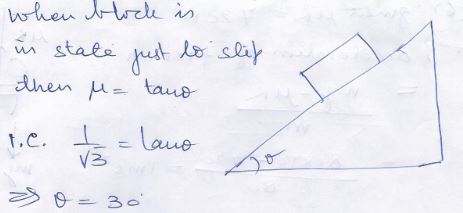 When block is
in state just to slip
then μ = tanθ
i.e. 1/√3 = tanθ
⇒ θ = 30°
θ